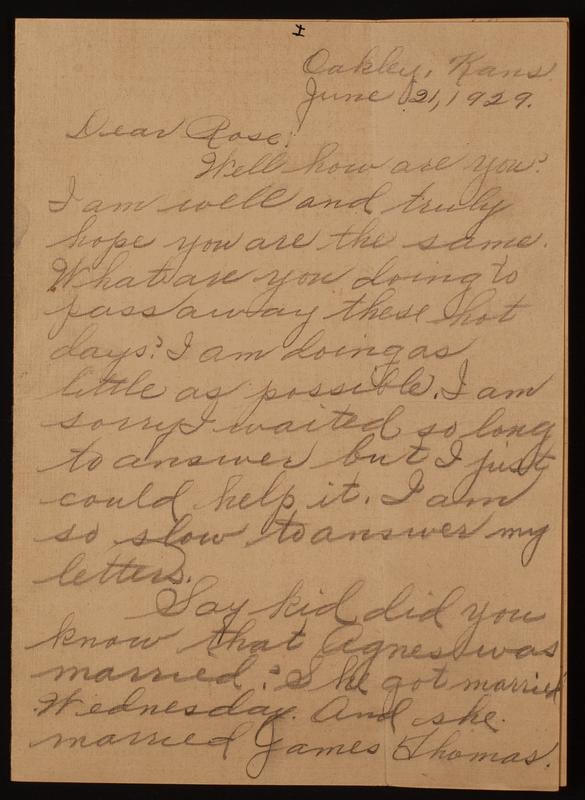 I
Oakley, Kans.
June 21, 1929.
Dear Rose:
Well how are you?
I am well and truly
hope you are the same.
What are you doing to
pass away these hot
days? I am doing as
little as possible. I am
sorry I waited so long
to answer but I just
could help it. I am
so slow to answer my
letters.
Say kid did you
know that Agnes was
married? She got married
Wednesday. And she
married James Thomas.